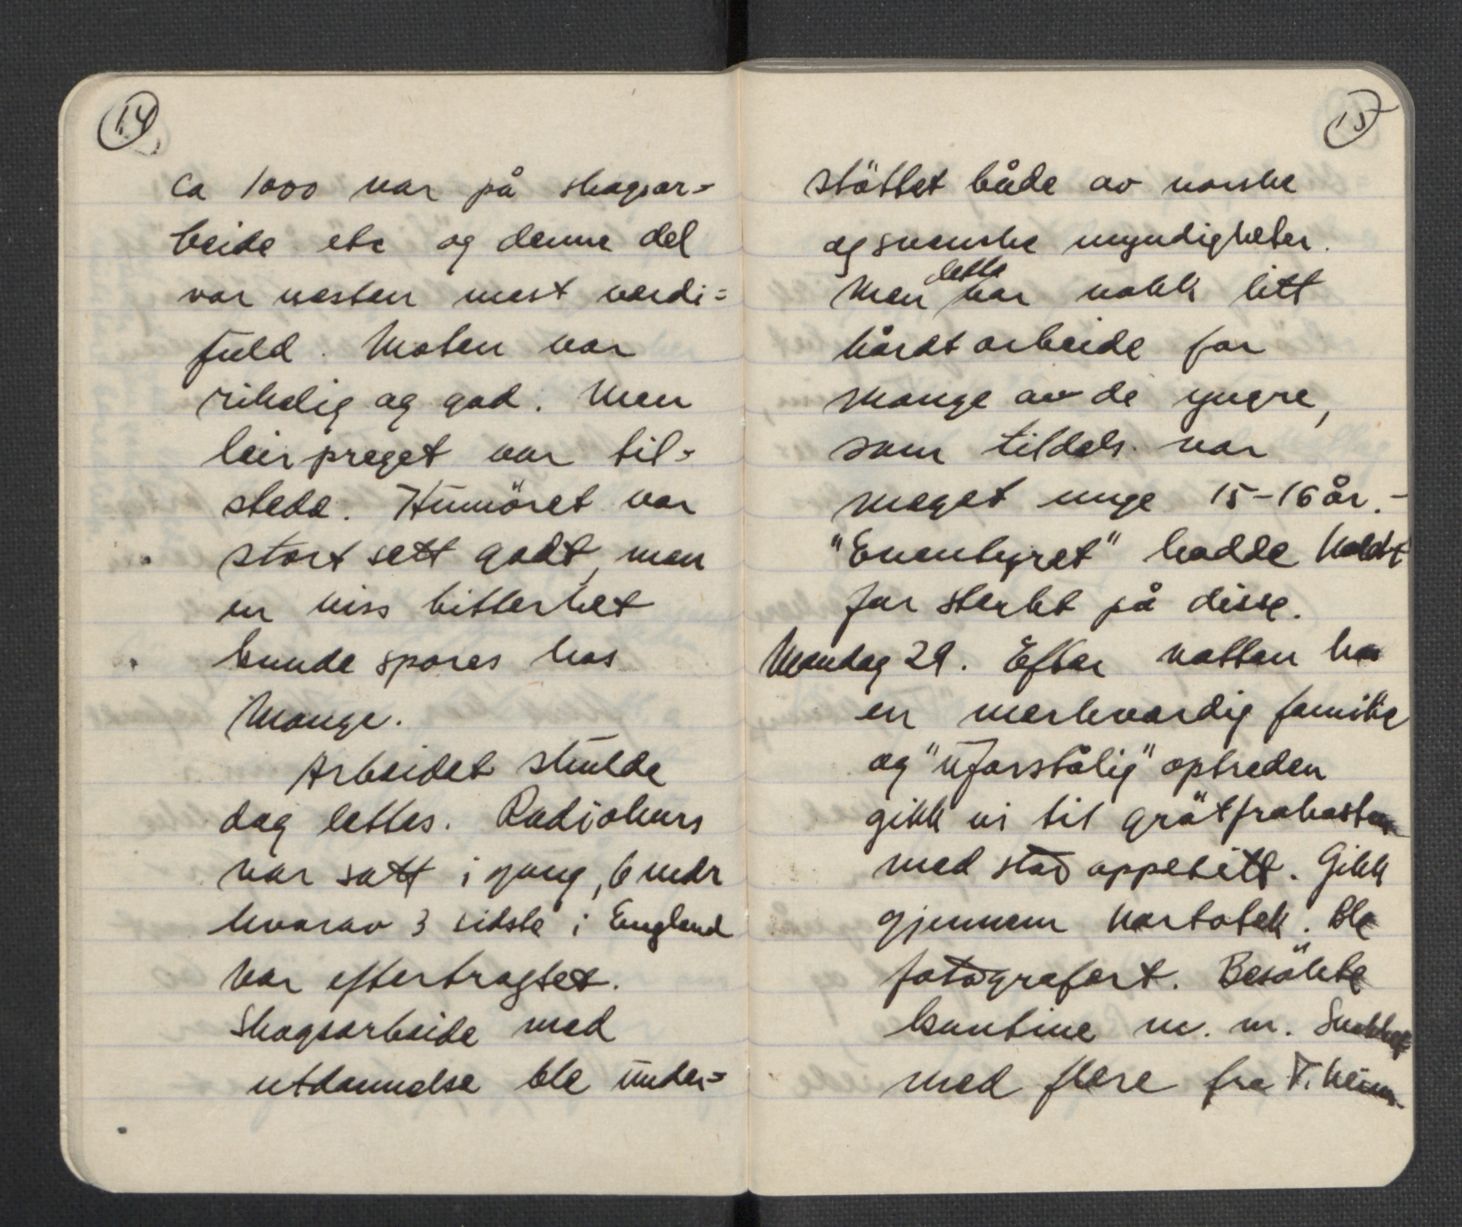 14
ca 1000 var på skogsar=
beide etc og denne del
var nesten mest verdi=
fuld. Maten var
rikelig og god. Men
leirpreget var til=
stede. Humöret var
stort sett godt, men
en viss bitterhet
kunde spores hos
Mange.
Arbeidet skulde
dog lettes. Radiokurs
var satt i gang, 6 mdr
hvorav 3 sidste i England
var eftertragtet.
Skogsarbeide med
utdannelse ble under=
15
stöttet både av norske
og svenske myndigheter.
Men dette var nokk litt
hårdt arbeide for
mange av de yngre,
som tildels var
meget unge 15-16 år.-
"Eventyret" hadde kaldt
for sterkt på disse.
Mandag 29. Efter natten hos
en merkvardig familie
og "uforståelig" optreden
gikk vi til grötfrokosten
med stor appetitt. Gikk
gjennem kartotek. Ble
fotografert. Besökte
kantine m. m. Snakket
med flere fra T.heim.